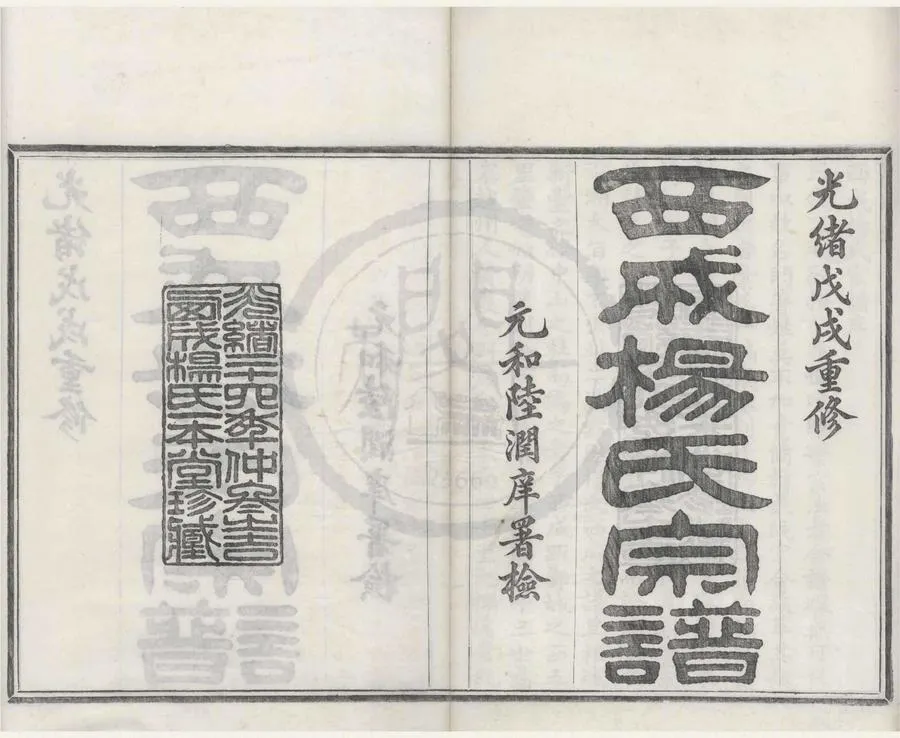 光緒戊戌重修
西成楊氏宗譜
元和陸潤庠署檢
光緒二十四年仲冬吉
西成楊氏一本堂珍藏